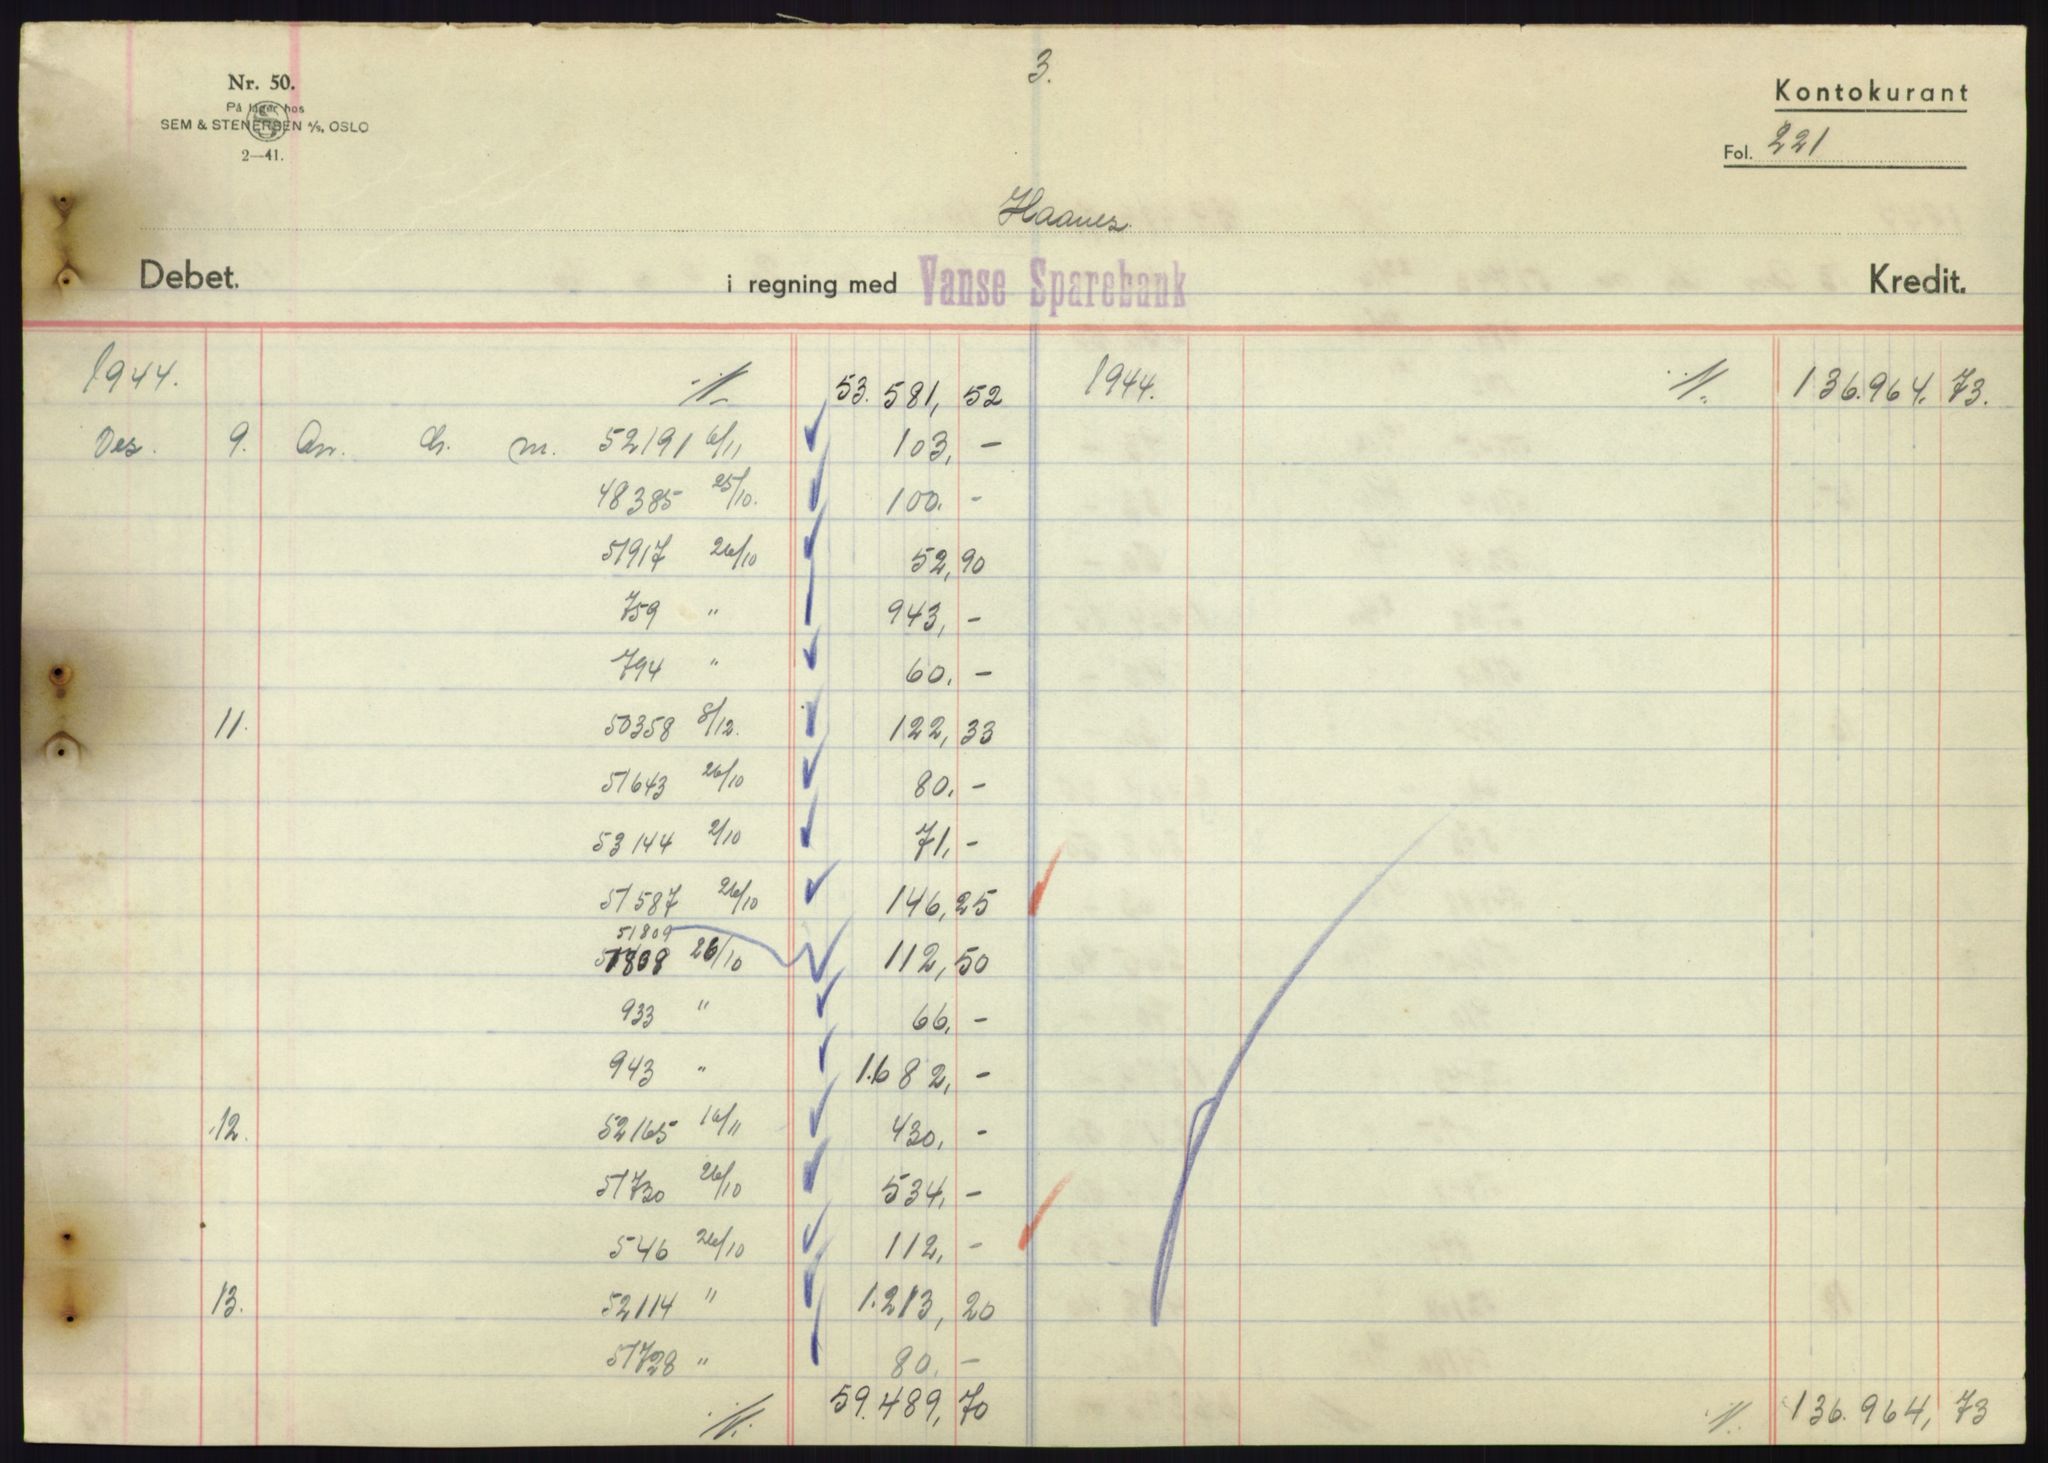 3.
Nr. 50.
På lager hos
SEM & STENERSEN A/S, OSLO
2—41.
Kontokurant
Fol. 221
Haanes
Debet. i regning med Vanse Sparebank Kredit.
1944. 53.581, 52 1944. 136.964. 73.
Des. 9. An. ch. m. 52191 6/11 103, -
48385 25/10. 100. -
51917 26/10 52,90
759 " 943, -
794 " 60. -
11. 50358 8/12. 122, 33
51643 26/10 80. -
53144 2/10 71, -
51587 26/10 146,25
51809
51808 26/10 112,50
933 " 66. -
943 " 1.682, -
12. 52165 16/11 430, -
51730 26/10 534, -
546 26/10 112, -
13. 52114 " 1.213, 20
51728 " 80. -
59.489, 70 136.964, 73